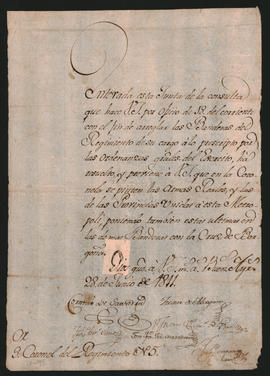 Enterada esta Junta de la consulta
que hace V.S. por oficio de 18. del corriente
con el fin de arreglar las Banderas del
Regimiento de su cargo à lo prescripto por
las ordenanzas grales del Exercito, ha
resuelto, y previene a V.S. que en la Coro-
nela se pongan las Armas Reales, y las
de las Provincias Unidas a esta Metro-
poli, poniendo tambien estas ultimas en
las demas Banderas con la Cruz de Bor-
goña.
Dios gue. a V.S. m.s a.s Buenos Ayres
28 de Junio de 1811.
Cornelio de Saavedra
Or
Sr Coronel del Regimiento No 5.